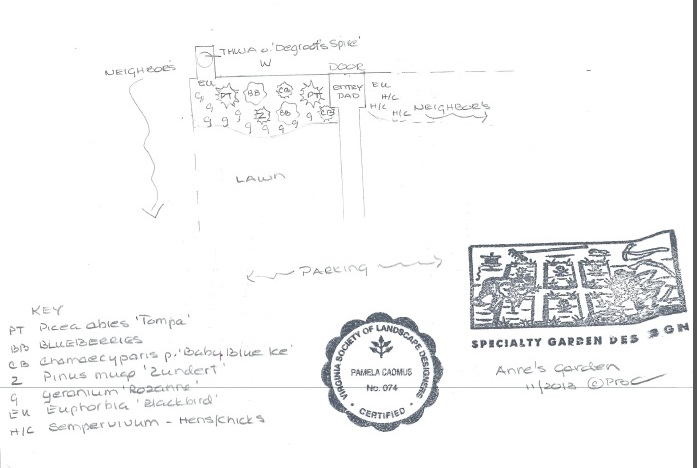 THUJA o. 'Degroot's Spire'
W
NEIGHBOR'S
DOOR
EU
PT
BB
CB
PT
ENTRY
PAD
EU
H/C
H/C
H/C
NEIGHBOR'S
g
g
g
g
g
Z
g
BB
g
g
CB
LAWN
PARKING
KEY
PT Picea abies 'Tompa'
BB BLUEBERRIES
CB Chamaecyparis p. 'Baby Blue Ice'
Z Pinus mugo 'Zundert'
g geranium 'Rozanne'
EU Euphorbia 'Blackbird'
H/C Sempervivum - Hens/chicks
VIRGINIA SOCIETY OF LANDSCAPE DESIGNERS
PAMELA CADMUS
No. 074
• CERTIFIED •
SPECIALTY GARDEN DES GN
Anne's Garden
11/2013 ©